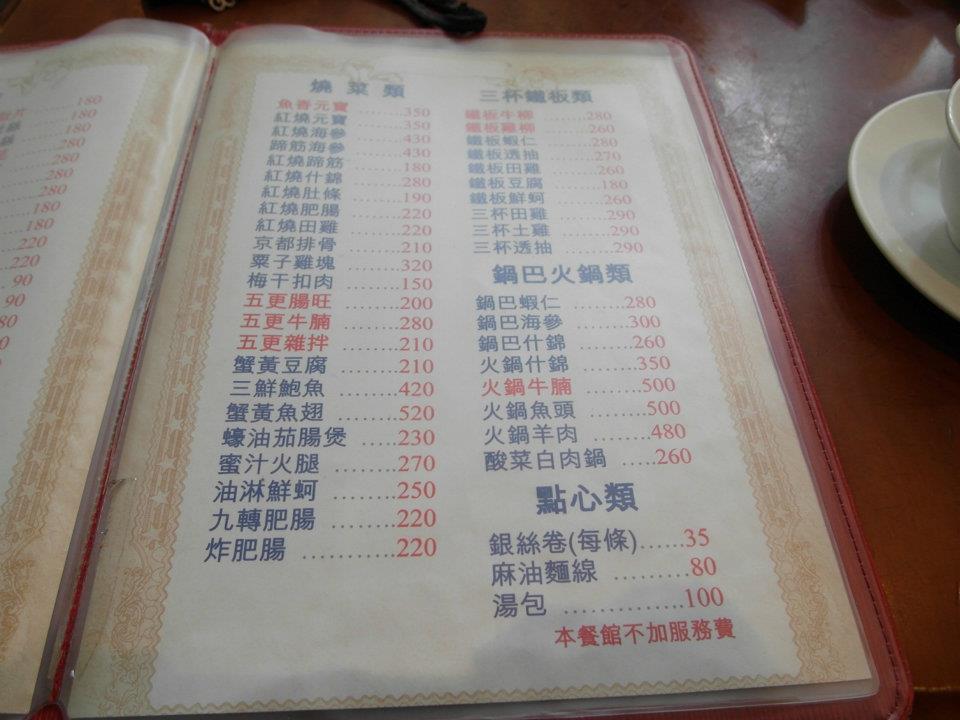 180
片 180
180
280
280
280
280
180
180
220
220
90
90
燒菜類
魚香元寶 350
紅燒元寶 350
紅燒海參 430
蹄筋海參 430
紅燒蹄筋 180
紅燒什錦 280
紅燒肚條 190
紅燒肥腸 220
紅燒田雞 220
京都排骨 210
栗子雞塊 320
梅干扣肉 150
五更腸旺 200
五更牛腩 280
五更雜拌 210
蟹黃豆腐 210
三鮮鮑魚 420
蟹黃魚翅 520
蠔油茄腸煲 230
蜜汁火腿 270
油淋鮮蚵 250
九轉肥腸 220
炸肥腸 220
三杯鐵板類
鐵板牛柳 280
鐵板雞柳 260
鐵板蝦仁 280
鐵板透抽 270
鐵板田雞 260
鐵板豆腐 180
鐵板鮮蚵 260
三杯田雞 290
三杯土雞 290
三杯透抽 290
鍋巴火鍋類
鍋巴蝦仁 280
鍋巴海參 300
鍋巴什錦 260
火鍋什錦 350
火鍋牛腩 500
火鍋魚頭 500
火鍋羊肉 480
酸菜白肉鍋 260
點心類
銀絲卷(每條) 35
麻油麵線 80
湯包 100
本餐館不加服務費